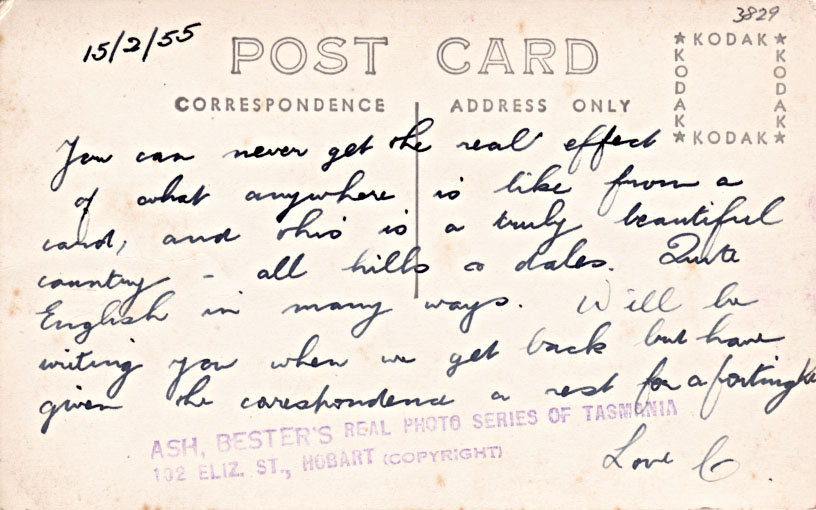 3829
15/2/55
POST CARD
★ KODAK ★
KODAK
KODAK
★ KODAK ★
CORRESPONDENCE
ADDRESS ONLY
You can never get the real effect
of what anywhere is like from a
card, and this is a truly beautiful
country - all hills & dales. Quite
English in many ways. Will be
writing you when we get back but have
given the corespondence a rest for a fortnight
ASH, BESTER'S REAL PHOTO SERIES OF TASMANIA
102 ELIZ. ST., HOBART (COPYRIGHT)
Love C.